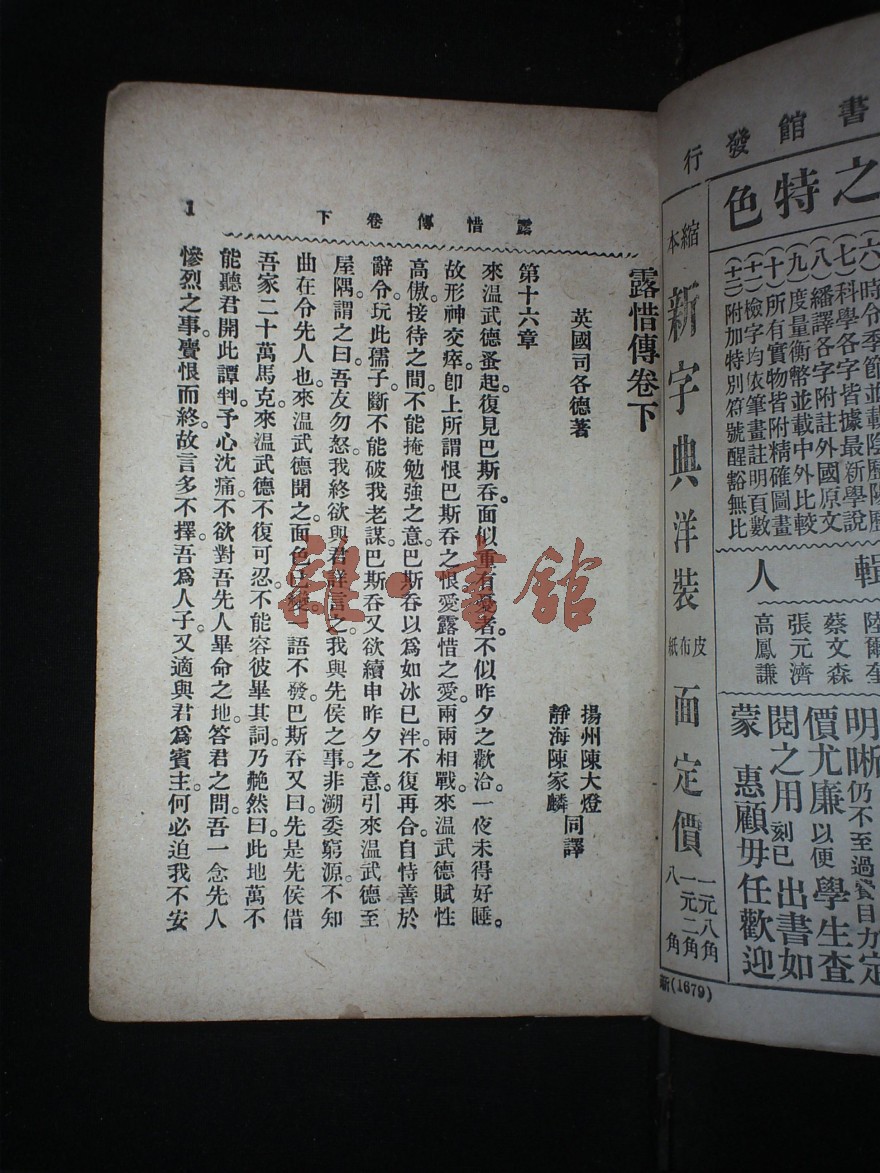 書館發行
之特色
(六)時令季節並載陰歷陽歷
(七)科學各字皆據最新學說
(八)繙譯各字附註外國原文
(九)度量衡幣並載中外比較
(十)所有實物皆附精確圖畫
(十一)檢字均依筆畫註明頁數
(十二)附加特別符號醒豁無比
輯人
陸爾奎
蔡文森
張元濟
高鳳謙
明晰仍不至過費目力定
價尤廉以便學生査
閱之用刻已出書如
蒙惠顧毋任歡迎
縮本新字典洋裝皮布紙面定價一元八角一元二角八角
新(1679)
露惜傳卷下
英國司各德著
揚州陳大燈
靜海陳家麟同譯
露惜傳卷下
1
第十六章
來溫武德蚤起。復見巴斯吞。面似重有憂者。不似昨夕之歡洽。一夜未得好睡。
故形神交瘁。卽上所謂恨巴斯吞之恨。愛露惜之愛。兩兩相戰。來溫武德賦性
高傲。接待之間。不能掩勉強之意。巴斯吞以爲如冰已泮。不復再合。自恃善於
辭令。玩此孺子。斷不能破我老謀。巴斯吞又欲續申昨夕之意。引來溫武德至
屋隅。謂之曰。吾友勿怒。我終欲與君詳言之。我與先侯之事。非溯委窮源。不知
曲在令先人也。來溫武德聞之。面色已變。語不發。巴斯吞又曰。先是先侯借
吾家二十萬馬克。來溫武德不復可忍。不能容彼畢其詞。乃艴然曰。此地萬不
能聽君開此譚判。予心沈痛。不欲對吾先人畢命之地。答君之問。吾一念先人
慘烈之事。賷恨而終。故言多不擇。吾爲人子。又適與君爲賓主。何必迫我不安
雜·書館